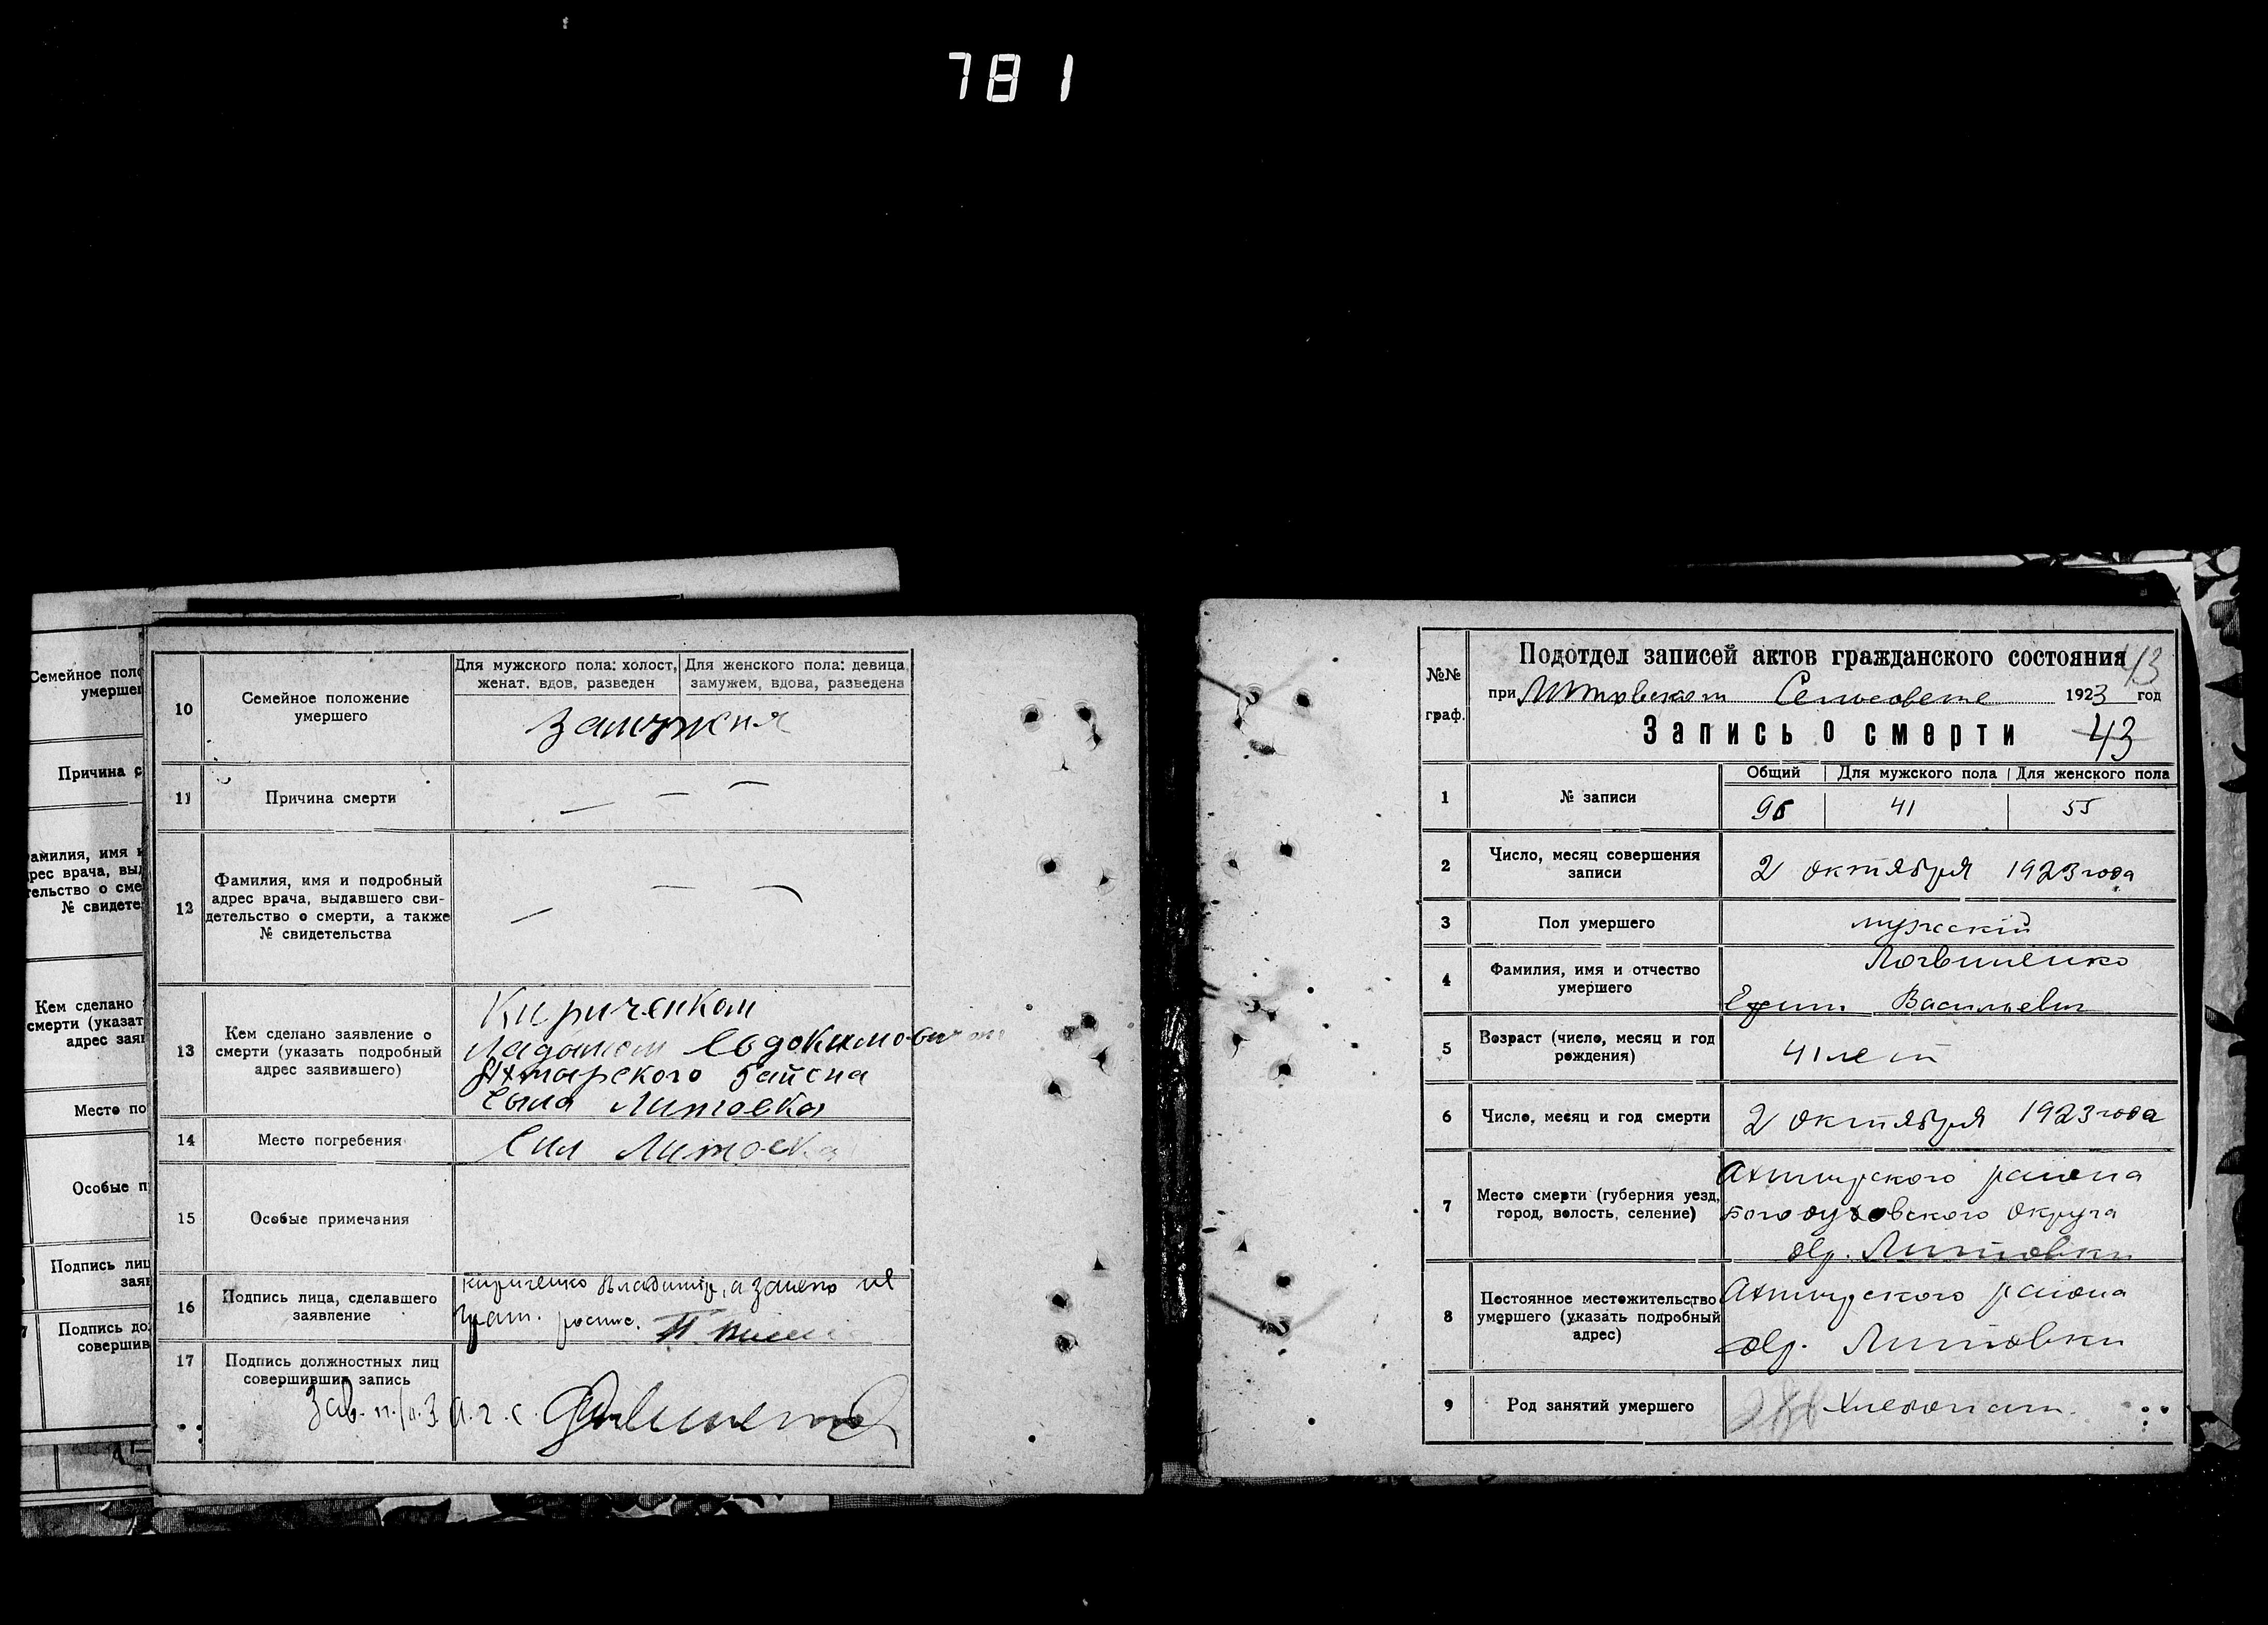 781
Семейное поло
умершег
Причина с
амилия, имя и
рес врача, вы
тельство о сме
№ свидете
Кем сделано
смерти (указат
адрес заяв
Место по
Особые п
Подпись лиц
заяв
Подпись до
совершив
10
Семейное положение
умершего
Для мужского пола: холост,
женат, вдов, разведен
Для женского пола: девица,
замужем, вдова, разведена
замужня
11
Причина смерти
— — —
12
Фамилия, имя и подробный
адрес врача, выдавшего сви-
детельство о смерти, а также
№ свидетельства
— — —
13
Кем сделано заявление о
смерти (указать подробный
адрес заявившего)
Кириченком
Евдокимович
Литовка
14
Место погребения
Литовка
15
Особые примечания
16
Подпись лица, сделавшего
заявление
Кириченко Владимир, а за него не
грам. роспис.
17
Подпись должностных лиц
совершивших запись
Зав. п./о. З.А.Г.С.
№№
граф.
Подотдел записей актов гражданского состояния
43
при Литовском Сельсовете 1923 год
Запись о смерти
43
1
№ записи
Общий
Для мужского пола
Для женского пола
96
41
55
2
Число, месяц совершения
записи
2 октября 1923 года
3
Пол умершего
мужскій
4
Фамилия, имя и отчество
умершего
Логвиненко
Васильевич
5
Возраст (число, месяц и год
рождения)
41 лет
6
Число, месяц и год смерти
2 октября 1923 года
7
Место смерти (губерния уезд,
город, волость, селение)
Ахтырского района
Богодуховского округа
Литовки
8
Постоянное местожительство
умершего (указать подробный
адрес)
Ахтырского района
Литовки
9
Род занятий умершего
Хлебопаш.